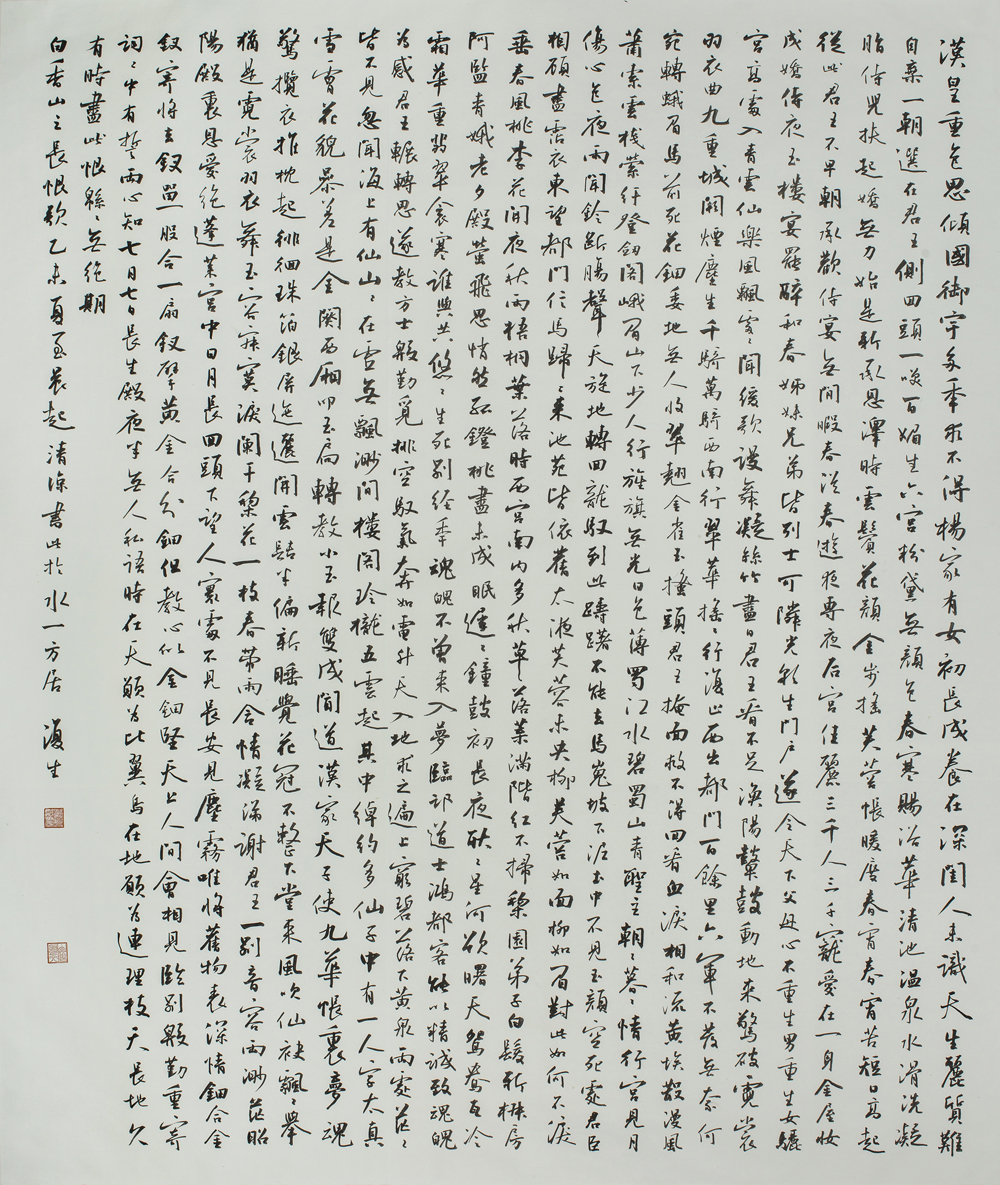 漢皇重色思傾國御宇多年求不得楊家有女初長成養在深閨人未識天生麗質難
自棄一朝選在君王側回頭一笑百媚生六宮粉黛無顏色春寒賜浴華清池温泉水滑洗凝
脂侍兒扶起嬌無力始是新承恩澤時雲鬢花顏金步搖芙蓉帳暖度春宵春宵苦短日高起
從此君王不早朝承歡侍宴無閒暇春從春遊夜專夜后宮佳麗三千人三千寵愛在一身金屋妝
成嬌侍夜玉樓宴罷醉和春姊妹兄弟皆列士可憐光彩生門戶遂令天下父母心不重生男重生女驪
宮高處入青雲仙樂風飄處〻聞緩歌謾舞凝絲竹盡日君王看不足漁陽鼙鼓動地來驚破霓裳
羽衣曲九重城闕煙塵生千騎萬騎西南行翠華搖〻行復止西出都門百餘里六軍不發無奈何
宛轉蛾眉馬前死花鈿委地無人收翠翹金雀玉搔頭君王掩面救不得回看血淚相和流黃埃散漫風
蕭索雲棧縈紆登劍閣峨眉山下少人行旌旗無光日色薄蜀江水碧蜀山青聖主朝〻暮〻情行宮見月
傷心色夜雨聞鈴斷腸聲天旋地轉回龍馭到此躊躇不能去馬嵬坡下泥土中不見玉顏空死處君臣
相顧盡霑衣東望都門信馬歸〻來池苑皆依舊太液芙蓉未央柳芙蓉如面柳如眉對此如何不淚
垂春風桃李花開夜秋雨梧桐葉落時西宮南內多秋草落葉滿階紅不掃梨園弟子白髮新椒房
阿監青娥老夕殿螢飛思悄然孤鐙挑盡未成眠遲〻鐘鼓初長夜耿〻星河欲曙天鴛鴦瓦冷
霜華重翡翠衾寒誰與共悠〻生死別經年魂魄不曾來入夢臨邛道士鴻都客能以精誠致魂魄
為感君王輾轉思遂教方士殷勤覓排空馭氣奔如電升天入地求之遍上窮碧落下黃泉兩處茫〻
皆不見忽聞海上有仙山〻在雲無飄渺間樓閣玲瓏五雲起其中綽約多仙子中有一人字太真
雪膚花貌參差是金闕西廂叩玉扃轉教小玉報雙成聞道漢家天子使九華帳裏夢魂
驚攬衣推枕起徘徊珠箔銀屏迤邐開雲髻半偏新睡覺花冠不整下堂來風吹仙袂飄〻舉
猶是霓裳羽衣舞玉容寂寞淚闌干梨花一枝春帶雨含情凝涕謝君王一別音容兩渺茫昭
陽殿裏恩愛絕蓬萊宮中日月長回頭下望人寰處不見長安見塵霧唯將舊物表深情鈿合金
釵寄將去釵留一股合一扇釵擘黃金合分鈿但教心似金鈿堅天上人間會相見臨別殷勤重寄
詞〻中有誓兩心知七月七日長生殿夜半無人私語時在天願為比翼鳥在地願為連理枝天長地久
有時盡此恨緜〻無絕期
白香山之長恨歌乙未夏至晨起清涼書此於水一方居 復生